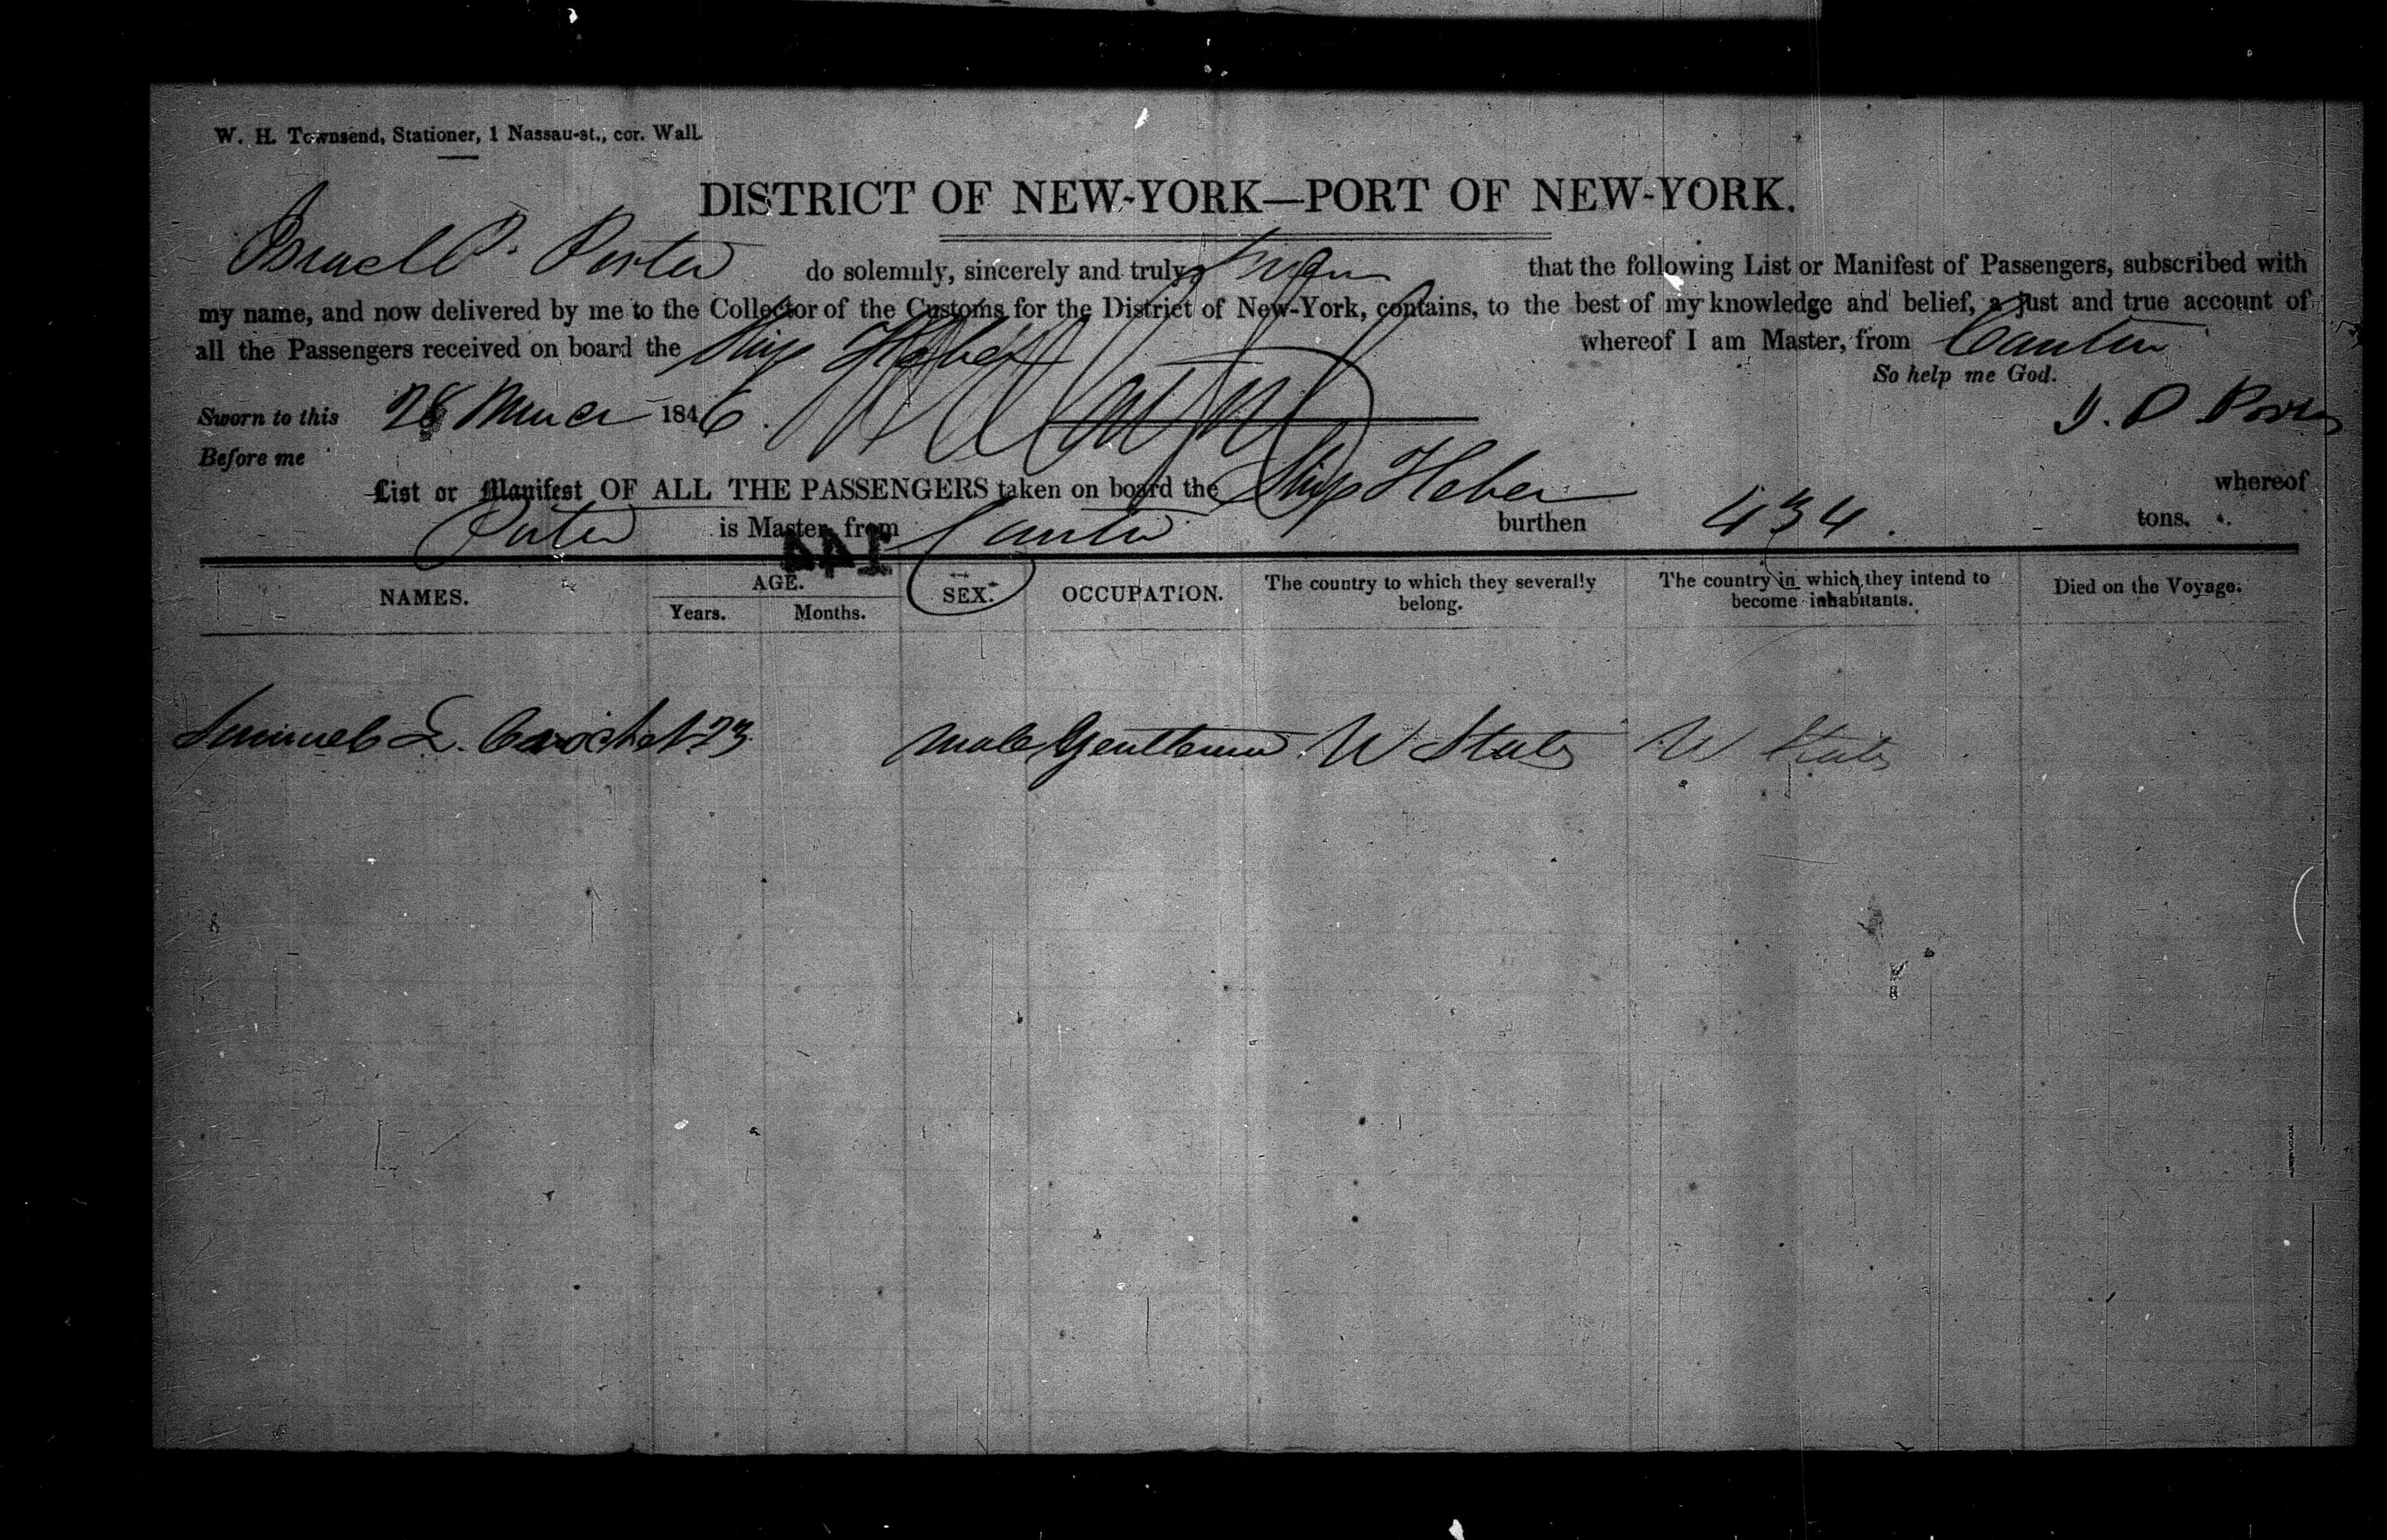 W. H. Townsend, Stationer, 1 Nassau-st., cor. Wall.
DISTRICT OF NEW-YORK—PORT OF NEW-YORK.
Israel P. Porter do solemnly, sincerely and truly that the following List or Manifest of Passengers, subscribed with
my name, and now delivered by me to the Collector of the Customs for the District of New-York, contains, to the best of my knowledge and belief, a just and true account of
all the Passengers received on board the Ship Heber whereof I am Master, from Canton
So help me God.
Sworn to this 28 1846. I. P. Porter
Before me
List or Manifest OF ALL THE PASSENGERS taken on board the Ship Heber whereof
Porter is Master, from Canton burthen 434. tons.
144
NAMES. AGE. SEX. OCCUPATION. The country to which they severally belong. The country in which they intend to become inhabitants. Died on the Voyage.
Years. Months.
Samuel L. 23 Male Gentleman U States U States